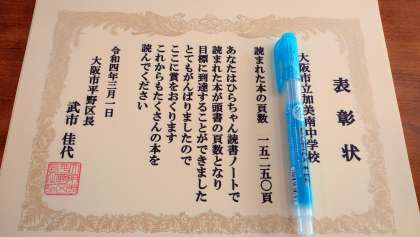 表彰状
大阪市立加美南中学校
読まれた本の頁数　一五二五〇頁
あなたはひらちゃん読書ノートで
読まれた本が頭書の頁数となり
目標に到達することができました
とてもがんばりましたので
ここに賞をおくります
これからもたくさんの本を
読んでください
令和四年三月一日
大阪市平野区長
武市　佳代